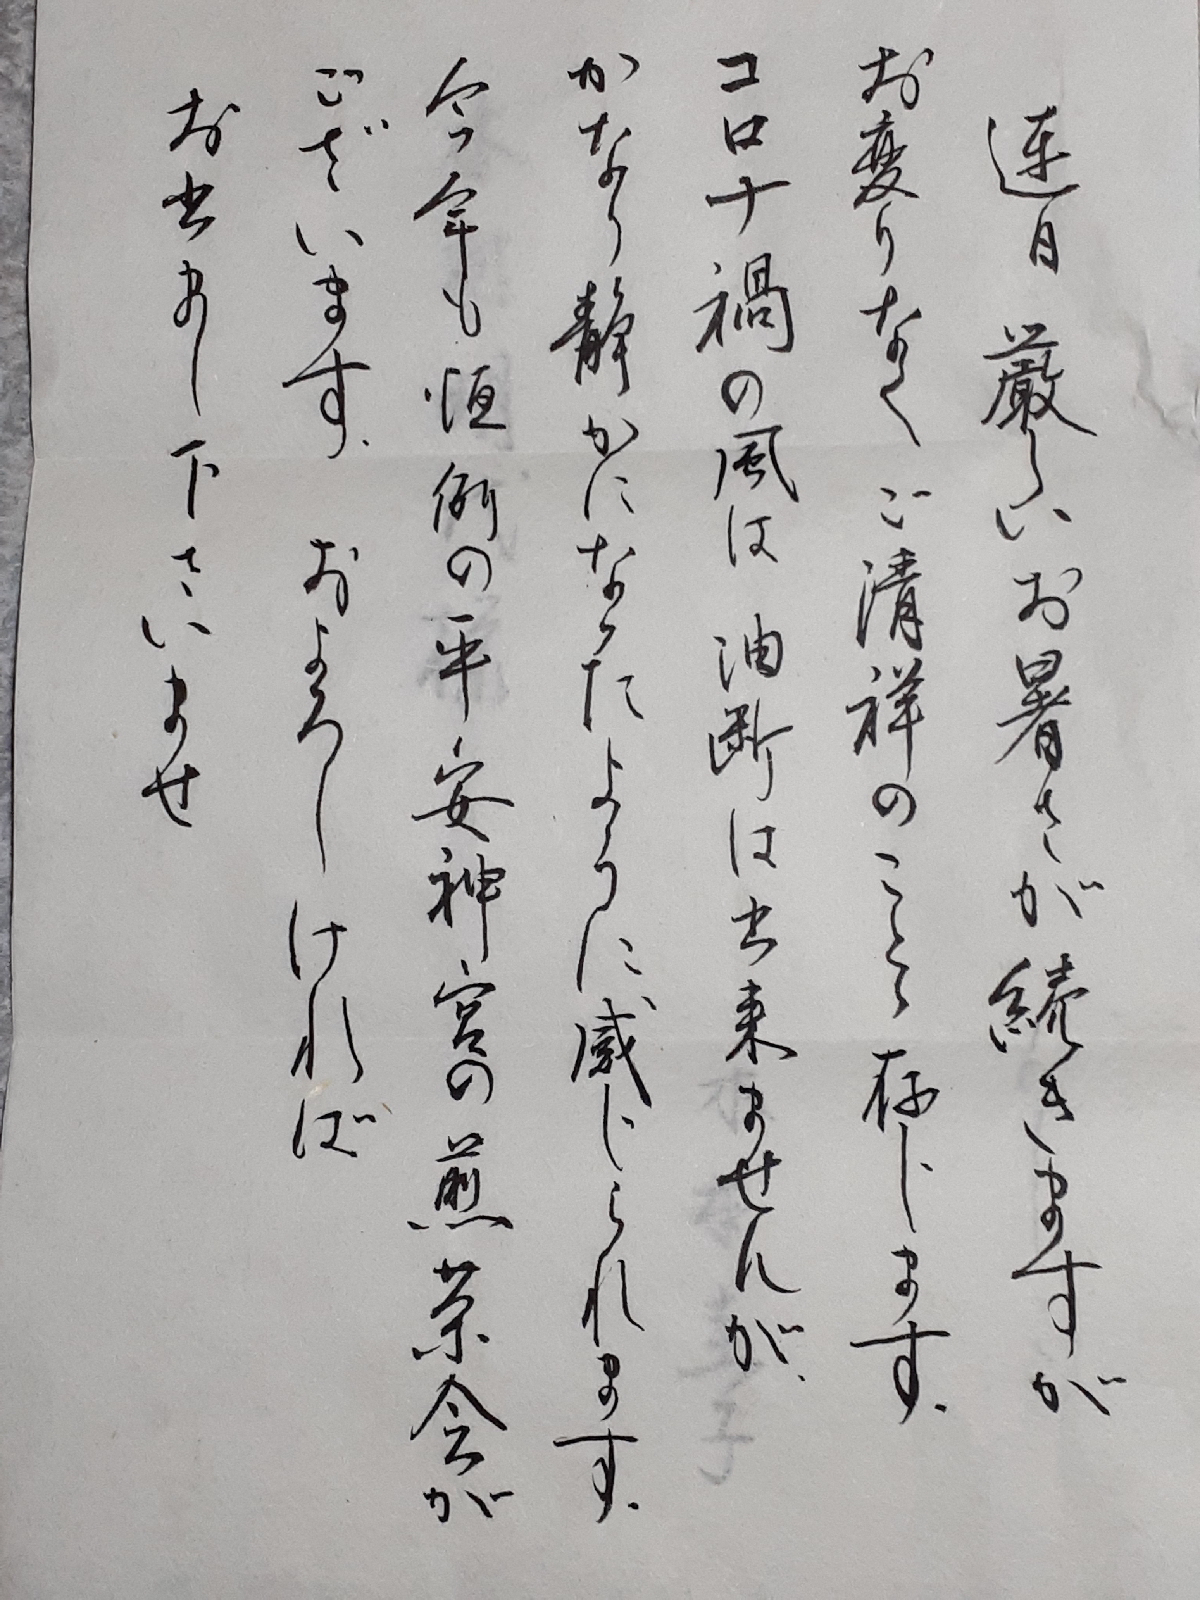 連日厳しいお暑さが続きますが
お変りなくご清祥のことと存じます.
コロナ禍の風は油断は出来ませんが.
かなり静かになったように感じられます.
今年も恒例の平安神宮の煎茶会が
ございます. およろしければ
お出まし下さいませ